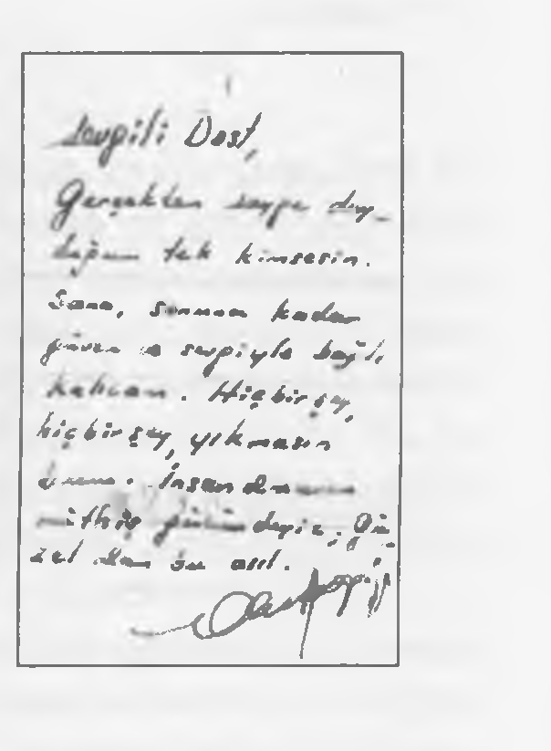 Sevgili Dost,
Gerçekten saygı duy-
duğum tek kimsesin.
Sana, sonuna kadar
güven ve sevgiyle bağlı
kalıcam. Hiçbir şey,
hiçbir şey, yıkmasın
İnsan
müthiş deyiz, Gü-
zel olan bu asıl.